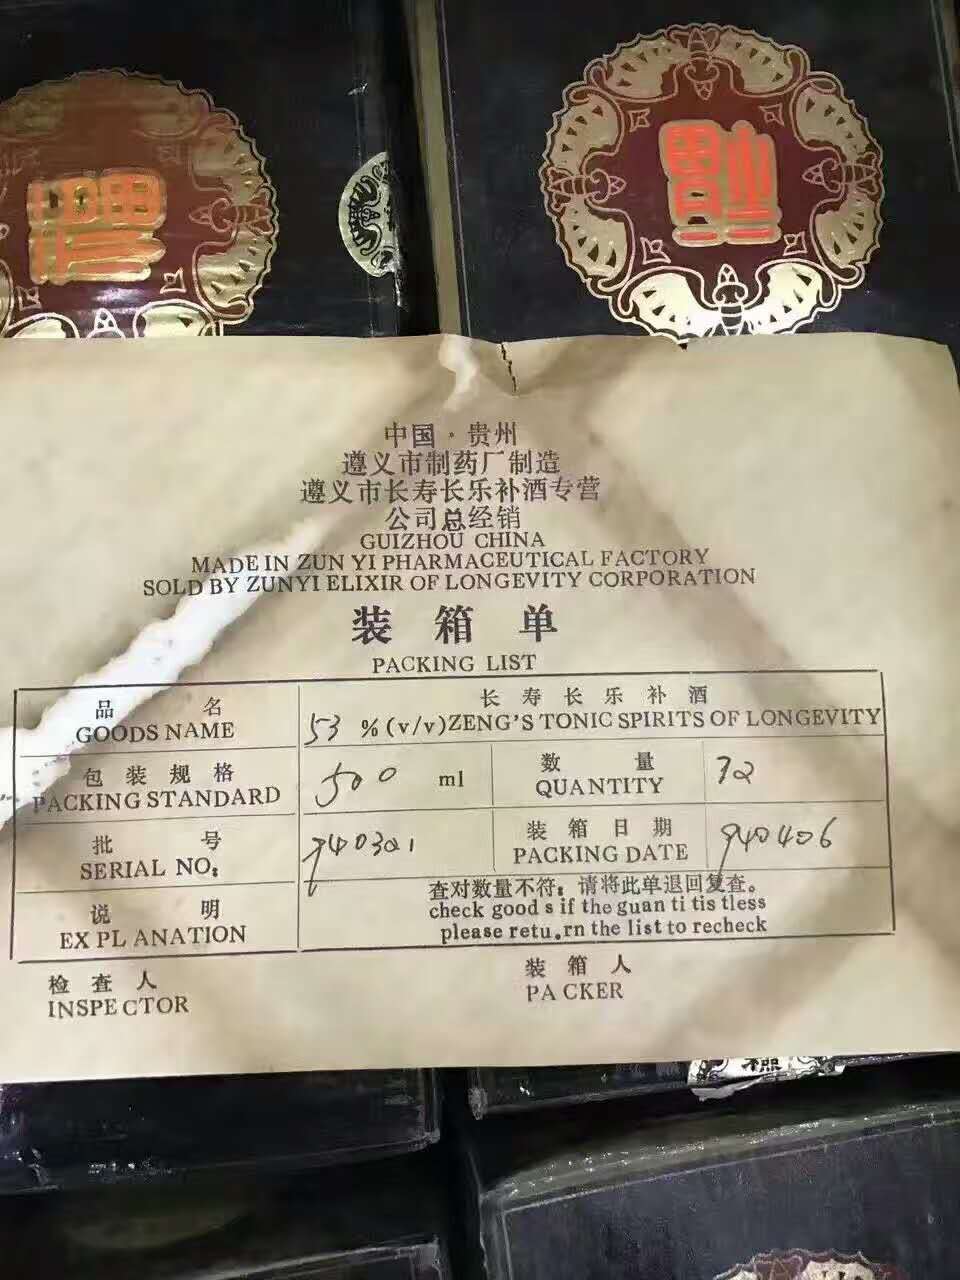 中国·贵州
遵义市制药厂制造
遵义市长寿长乐补酒专营
公司总经销
GUIZHOU CHINA
MADE IN ZUN YI PHARMACEUTICAL FACTORY
SOLD BY ZUNYI ELIXIR OF LONGEVITY CORPORATION
装箱单
PACKING LIST
品名 长寿长乐补酒
GOODS NAME 53 %(v/v)ZENG'S TONIC SPIRITS OF LONGEVITY
包装规格 500 ml 数量 12
PACKING STANDARD QUANTITY
批号 940301 装箱日期 940406
SERIAL NO: PACKING DATE
说明 查对数量不符：请将此单退回复查。
EXPLANATION check goods if the guan ti tis tless
please retu.rn the list to recheck
检查人 装箱人
INSPECTOR PACKER